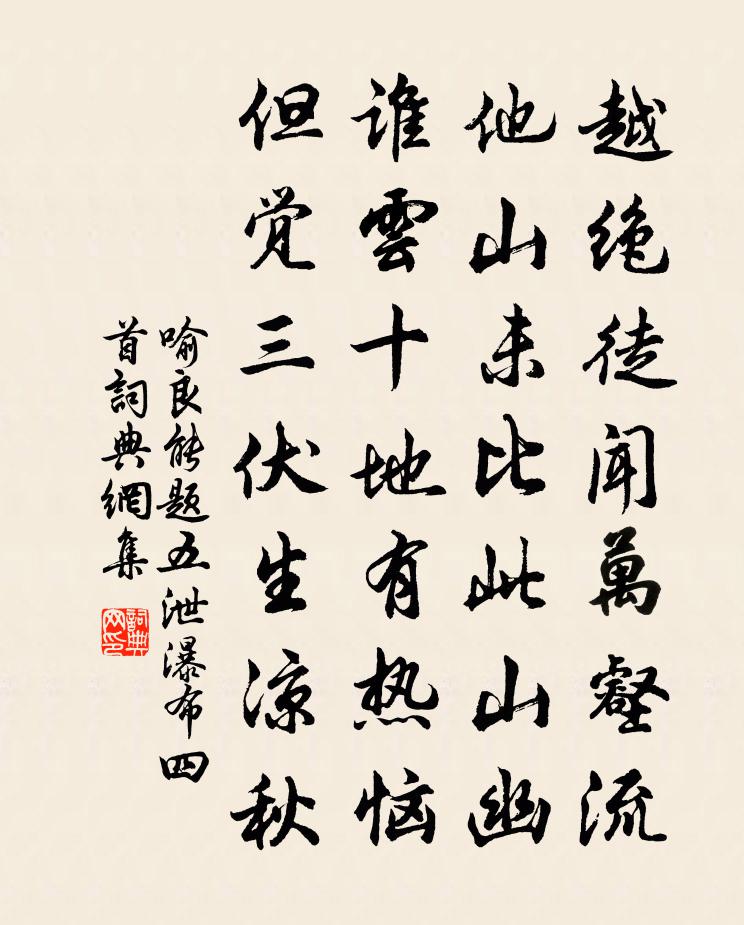 越絶徒聞萬壑流
他山未比此山幽
谁雲十地有热恼
但觉三伏生凉秋
喻良能题五泄瀑布四
首詞典網集
詞典
网印